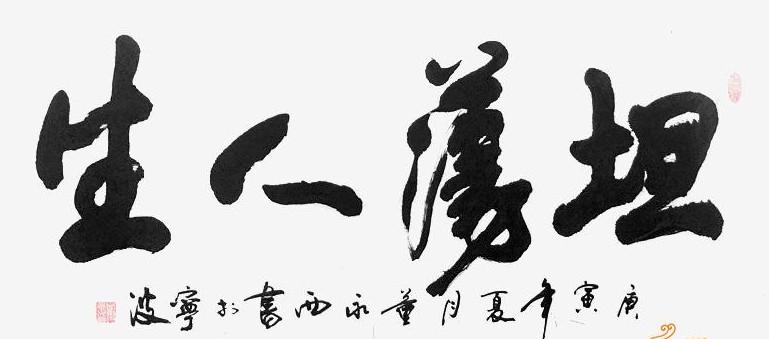 坦蕩人生
庚寅年夏月董永西書於寧波